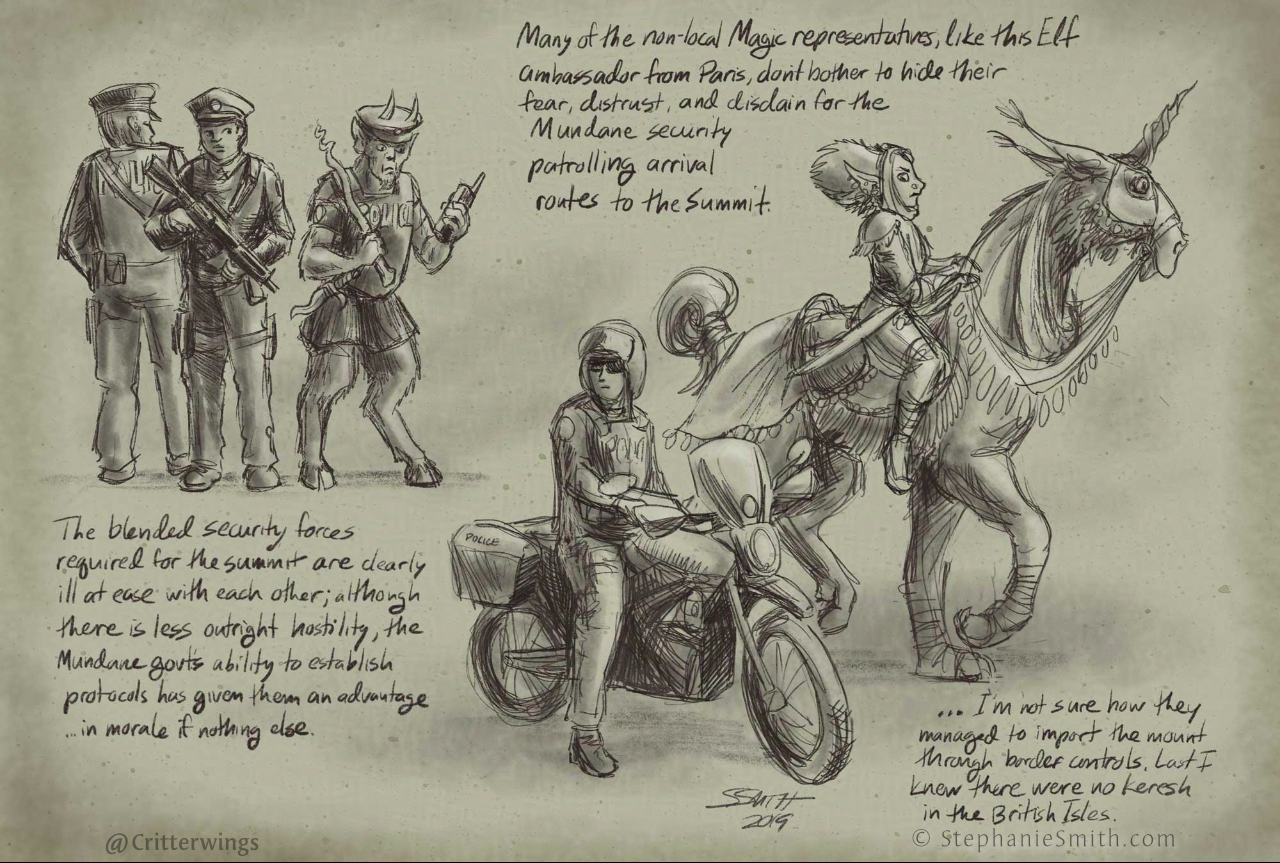 Many of the non-local Magic representatives, like this Elf
ambassador from Paris, don't bother to hide their
fear, distrust, and disdain for the
Mundane security
patrolling arrival
routes to the Summit.
POLICE
The blended security forces
required for the summit are clearly
ill at ease with each other; although
there is less outright hostility, the
Mundane govt's ability to establish
protocols has given them an advantage
...in morale if nothing else.
... I'm not sure how they
managed to import the mount
through border controls. Last I
knew there were no keresh
in the British Isles.
SSMITH
2019
@Critterwings
© StephanieSmith.com